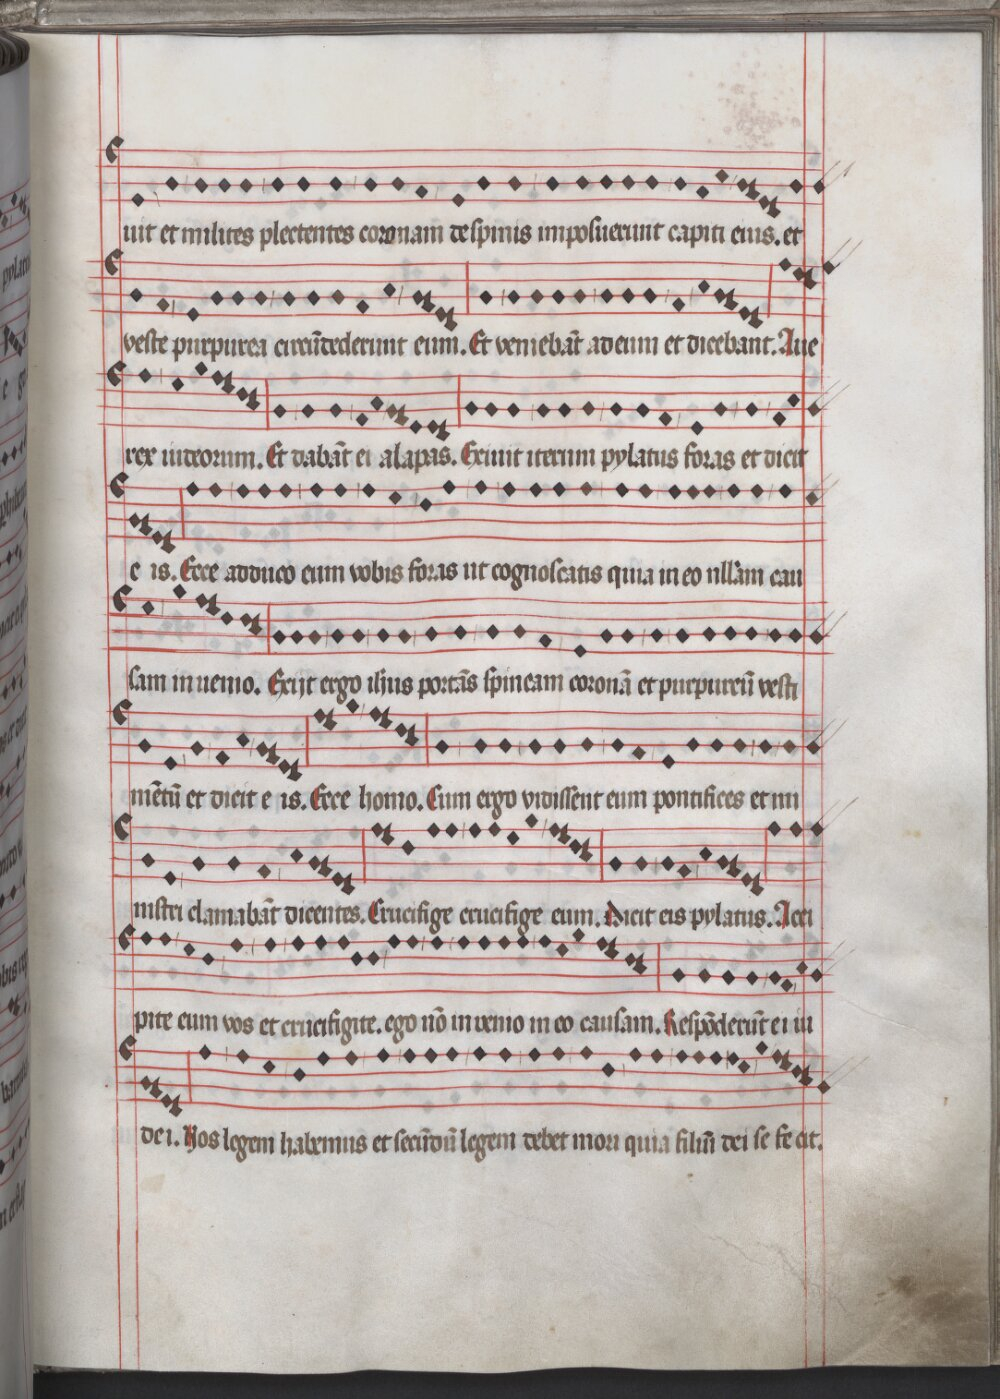 uit et milites plectentes coronam de spinis imposuerunt capiti eius. et
veste purpurea circūdederunt eum. Et veniebāt ad eum et dicebant. Aue
rex iudeorum. Et dabāt ei alapas. Exiuit iterum pylatus foras et dicit
e is. Ecce adduco eum vobis foras ut cognoscatis quia in eo nullam cau
sam inuenio. Exijt ergo ihūs portās spineam coronā et purpureū vesti
mētū et dicit e is. Ecce homo. Cum ergo vidissent eum pontifices et mi
nistri clamabāt dicentes. Crucifige crucifige eum. Dicit eis pylatus. Acci
pite eum vos et crucifigite. ego nō inuenio in eo causam. Respōderūt ei iu
dei. Nos legem habemus et secūdū legem debet mori quia filiū dei se fecit.